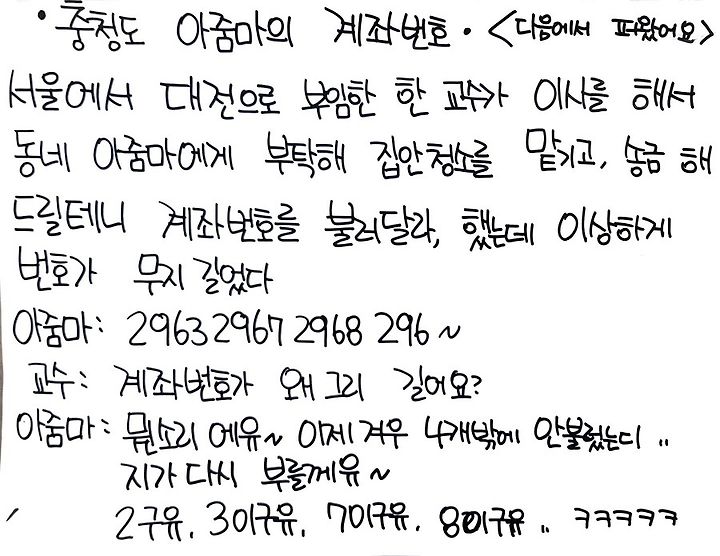 · 충청도 아줌마의 계좌번호 · <다음에서 퍼왔어요>
서울에서 대전으로 부임한 한 교수가 이사를 해서
동네 아줌마에게 부탁해 집안청소를 맡기고, 송금 해
드릴테니 계좌번호를 불러달라, 했는데 이상하게
번호가 무지 길었다
아줌마: 2963 2967 2968 296 ~
교수: 계좌번호가 왜 그리 길어요?
아줌마: 뭔소리 에유~ 이제 겨우 4개밖에 안불렀는디 ..
지가 다시 부를께유 ~
2구유. 3이구유. 7이구유. 8이구유 .. ㅋㅋㅋㅋㅋ